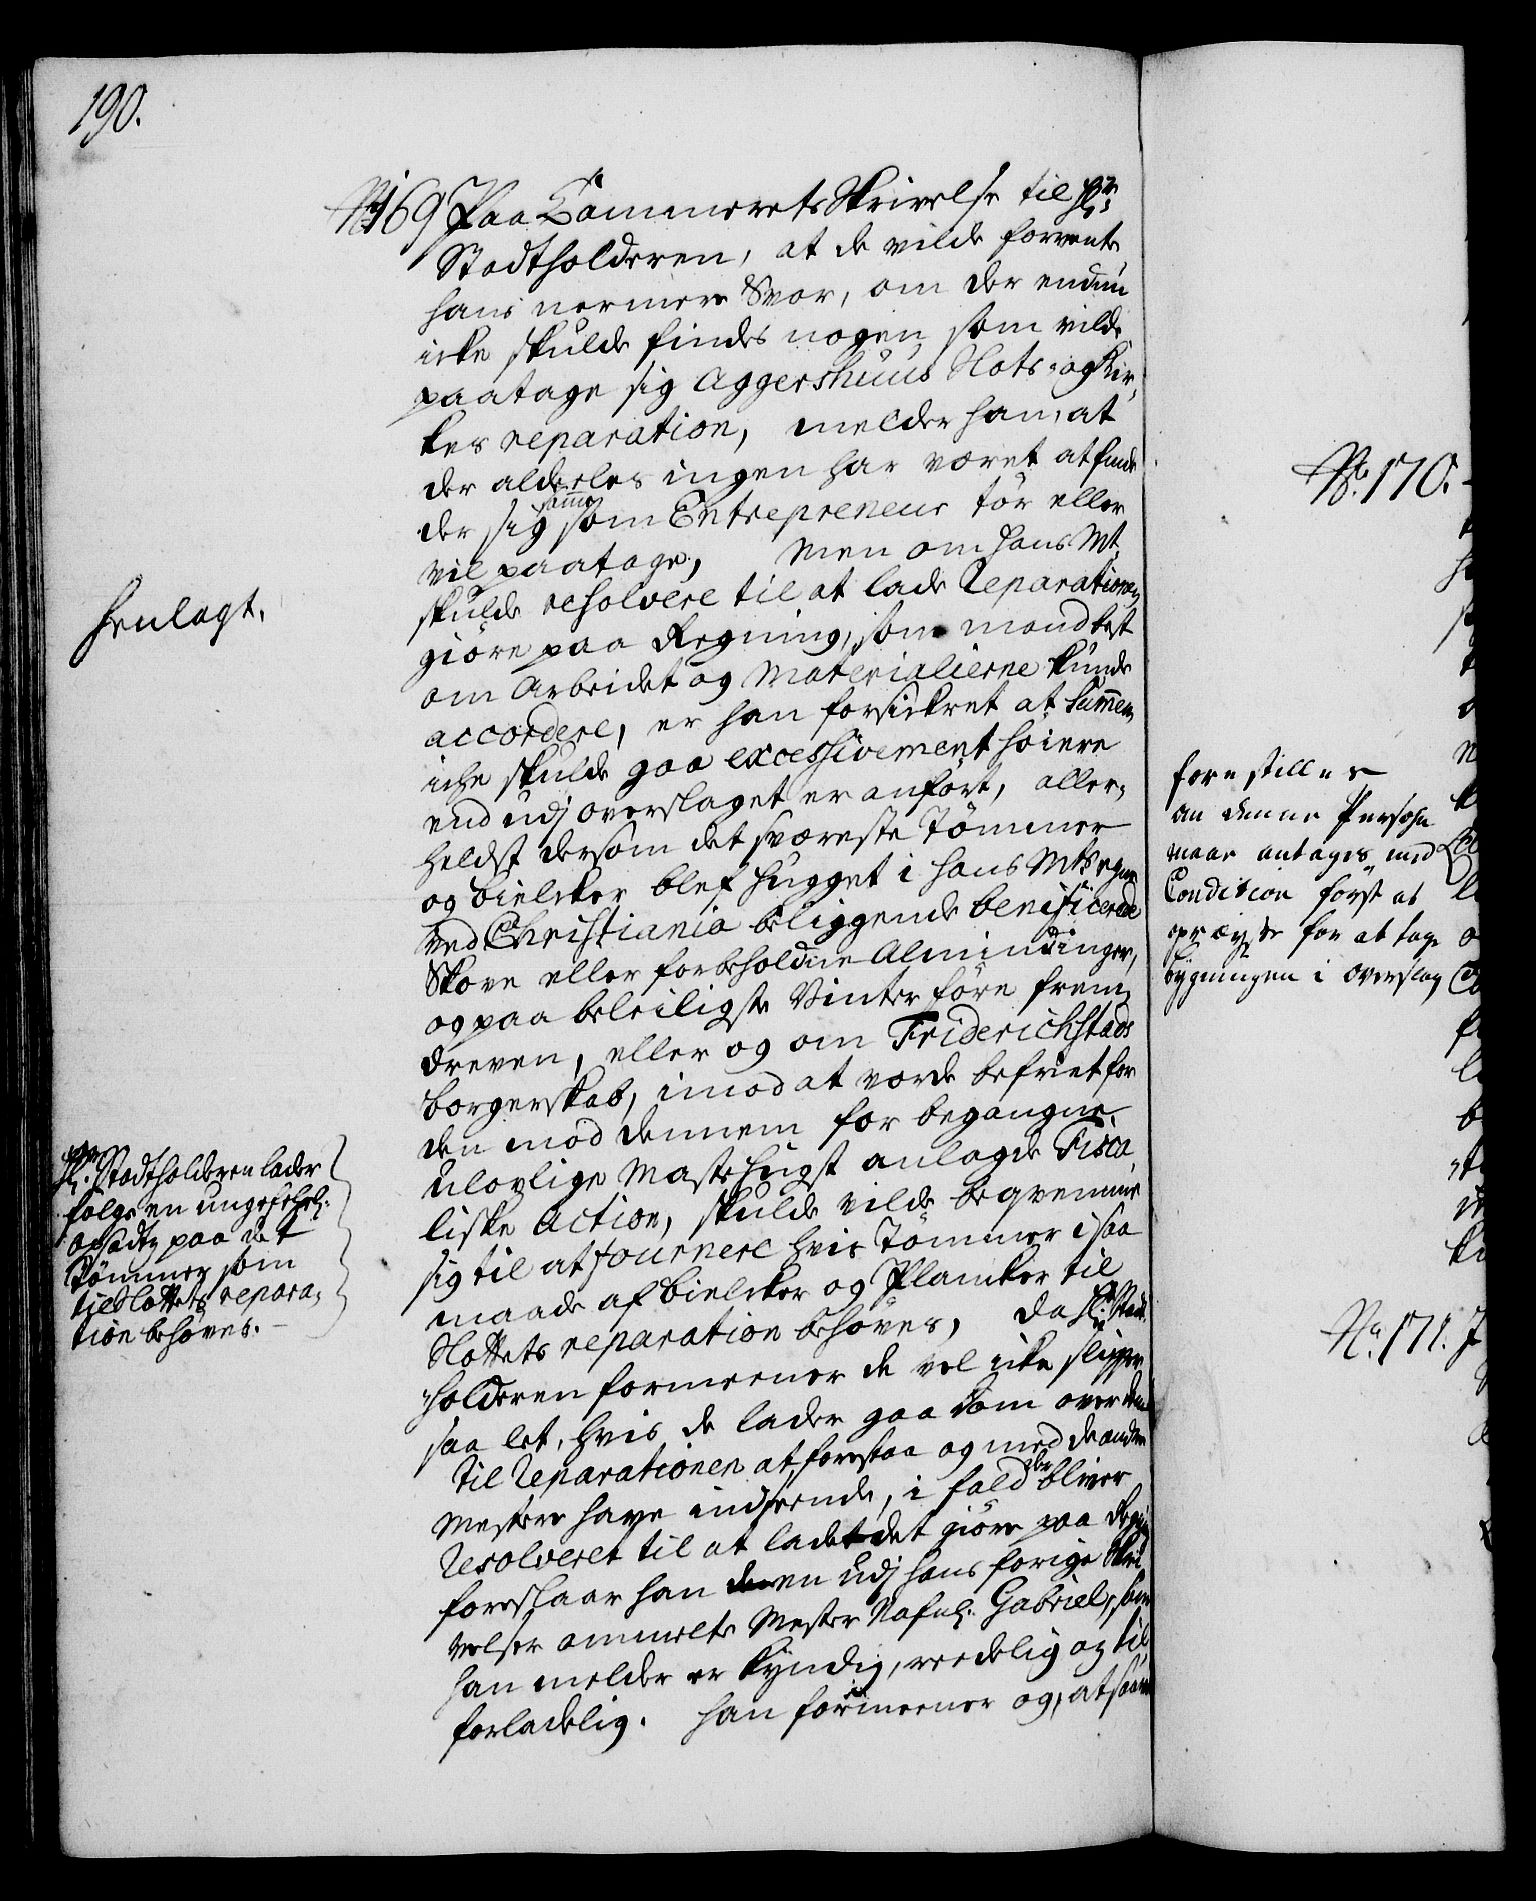 190.
No 169 Paa Cammerets Skrivelse til Hr:
Stadtholderen, at de vilde forvente
hans nermere Svar, om der endnu
icke skulde findes nogen som vilde
paatage sig Aggershuus Slots- og Kir-
kes reparation, melder han, at
der aldeeles ingen har været at finde
der sig samme som Entrepreneur tör eller
vil paatage, Men om Hans Mt.
skulde resolvere til at lade Reparationen
giöre paa Regning, som mand best
om Arbeidet og Materialierne kunde
accordere, er han forsickret at Summen
icke skulde gaa excessivement höiere
end udj overslaget er anfört, aller-
heldst dersom det sværeste Tömmer
og bielcker blef hugget i Hans Mts egne
ved Christiania beliggende beneficerede
Skove eller forbeholdne Almindinger,
og paa beleiligste Vinter före frem-
dreven, eller og om Friderichstads
borgerskab, imod at vorde befriet for
den mod dennem for begangne
ulovlige Mastehugst anlagde Fisca-
liske Action, skulde vilde beqvemme
sig til at fournere hvis Tömmer i saa
maade af bielcker og Plancker til
Slottets reparation behöves, da Hr: Stadt-
holderen formeener de vel icke slipper
saa let, hvis de lader gaa Dom over dem
Til Reparationen at forestaa og med de andre
Mestere have indseende, i fald der bliver
Resolveret til at lade det giöre paa Regning
foreslaar han den udj hans forige Skri-
velser ommelte Mester Nafnl: Gabriel, som
han melder er kyndig, reedelig og til-
forladelig. Han formeener og, at saa
Henlagt.
Hr: Stadtholderen lader
fölge en ungefehrl:
opsadtz paa det
Tömmer som
til Slottets repara-
tion behöves.
No. 170.
forestilles
an denne Persohn
maae antages med
Condition först at
opreyse for at tage
bygningen i overslag
No. 171.